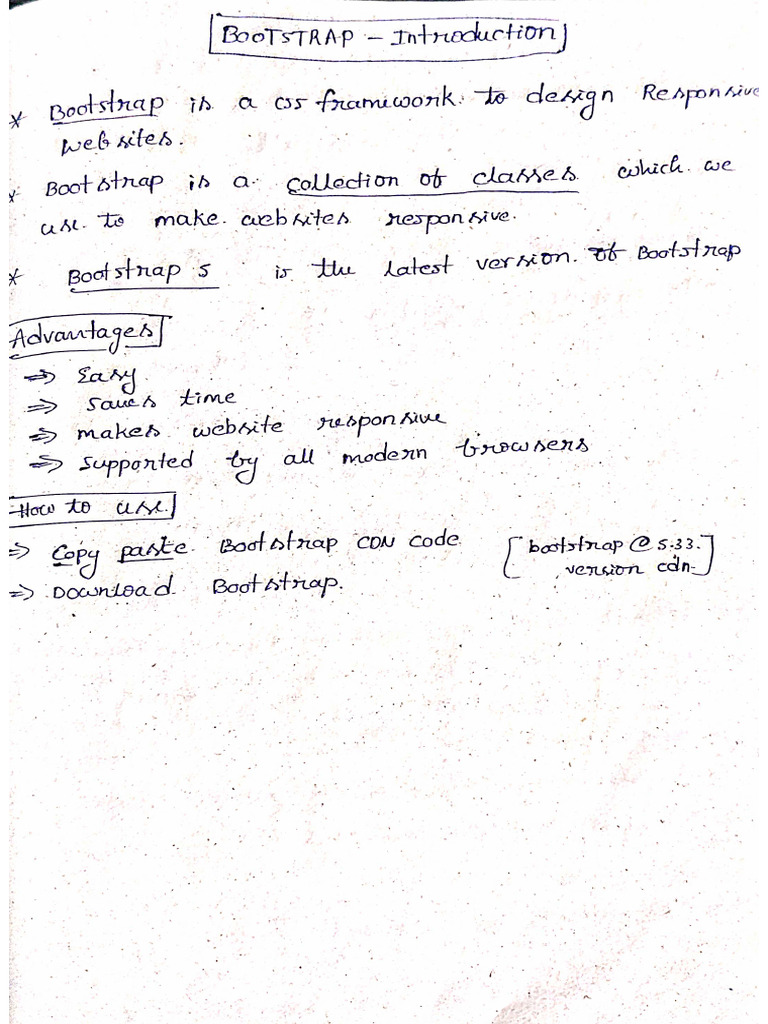 BOOTSTRAP - Introduction
* Bootstrap is a css framework. to design Responsive
websites.
* Bootstrap is a collection of classes which we
use to make websites responsive.
* Bootstrap 5 is the latest version of Bootstrap
Advantages
⇒ Easy
⇒ saves time
⇒ makes website responsive
⇒ supported by all modern browsers
How to use
⇒ Copy paste Bootstrap CDN code [bootstrap @ 5.33.
version cdn-]
⇒ Download Bootstrap.